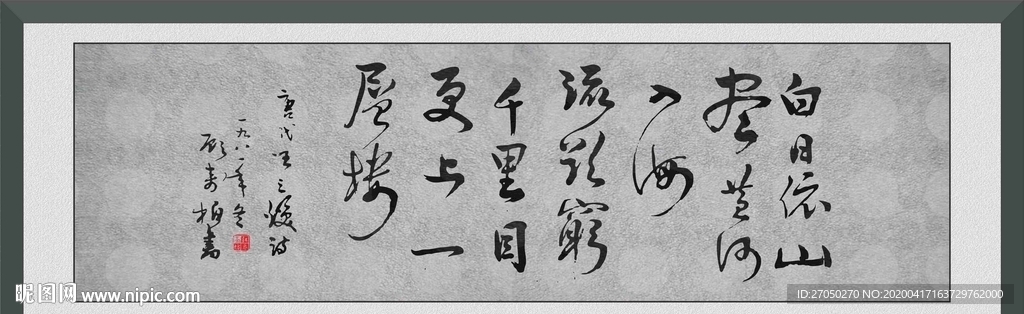 白日依山
盡黄河
入海
流欲窮
千里目
更上一
層樓
唐代王之渙詩
一九八一年冬
顾寿柏書
昵图网 www.nipic.com
ID:27050270 NO:20200417163729762000